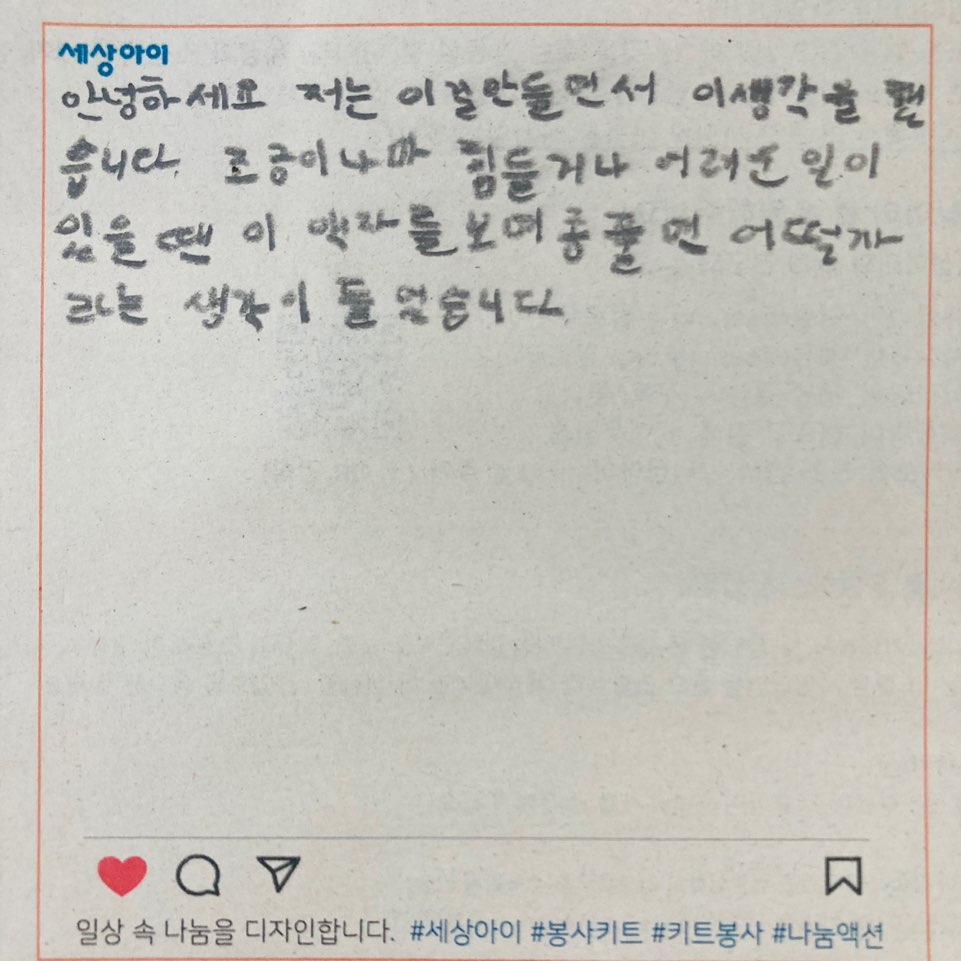 세상아이
안녕하세요 저는 이걸만들면서 이생각을 했
습니다. 조금이나마 힘들거나 어려운 일이
있을땐 이 액자를 보며 좀 풀면 어떨까
라는 생각이 들었습니다.
일상 속 나눔을 디자인합니다. #세상아이 #봉사키트 #키트봉사 #나눔액션